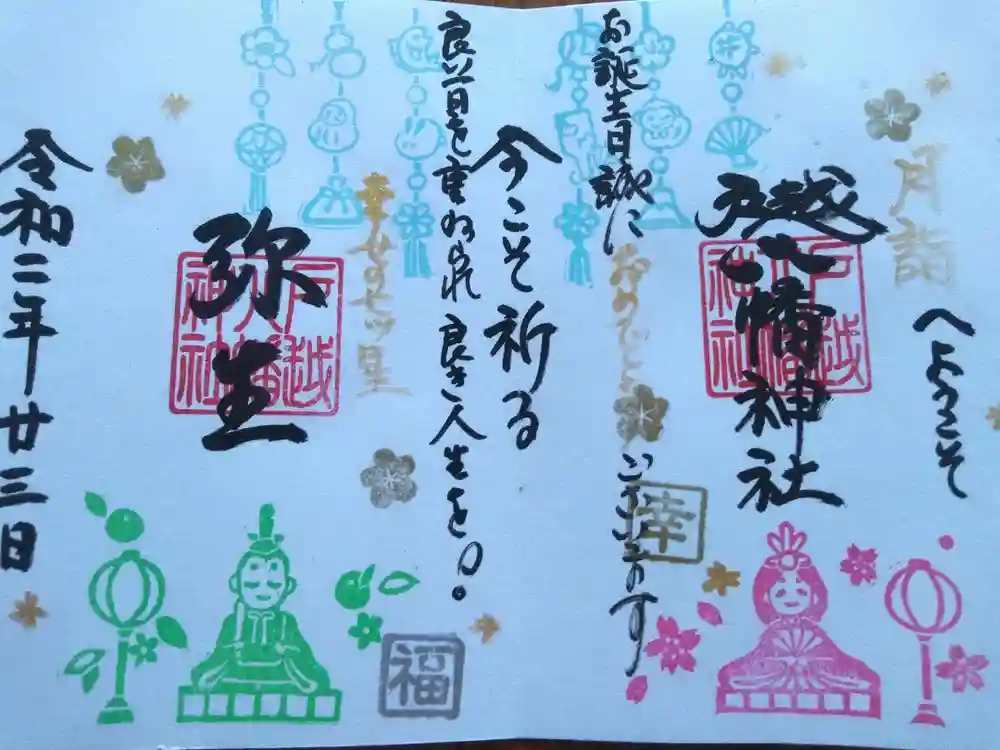 月詣
へようこそ
戸越八幡神社
戸越
八幡
神社
お誕生日誠に
おめでとう
ございます
幸
今こそ祈る
良い日を重ねられ良き人生を。
弥生
戸越
八幡
神社
福
令和二年廿三日